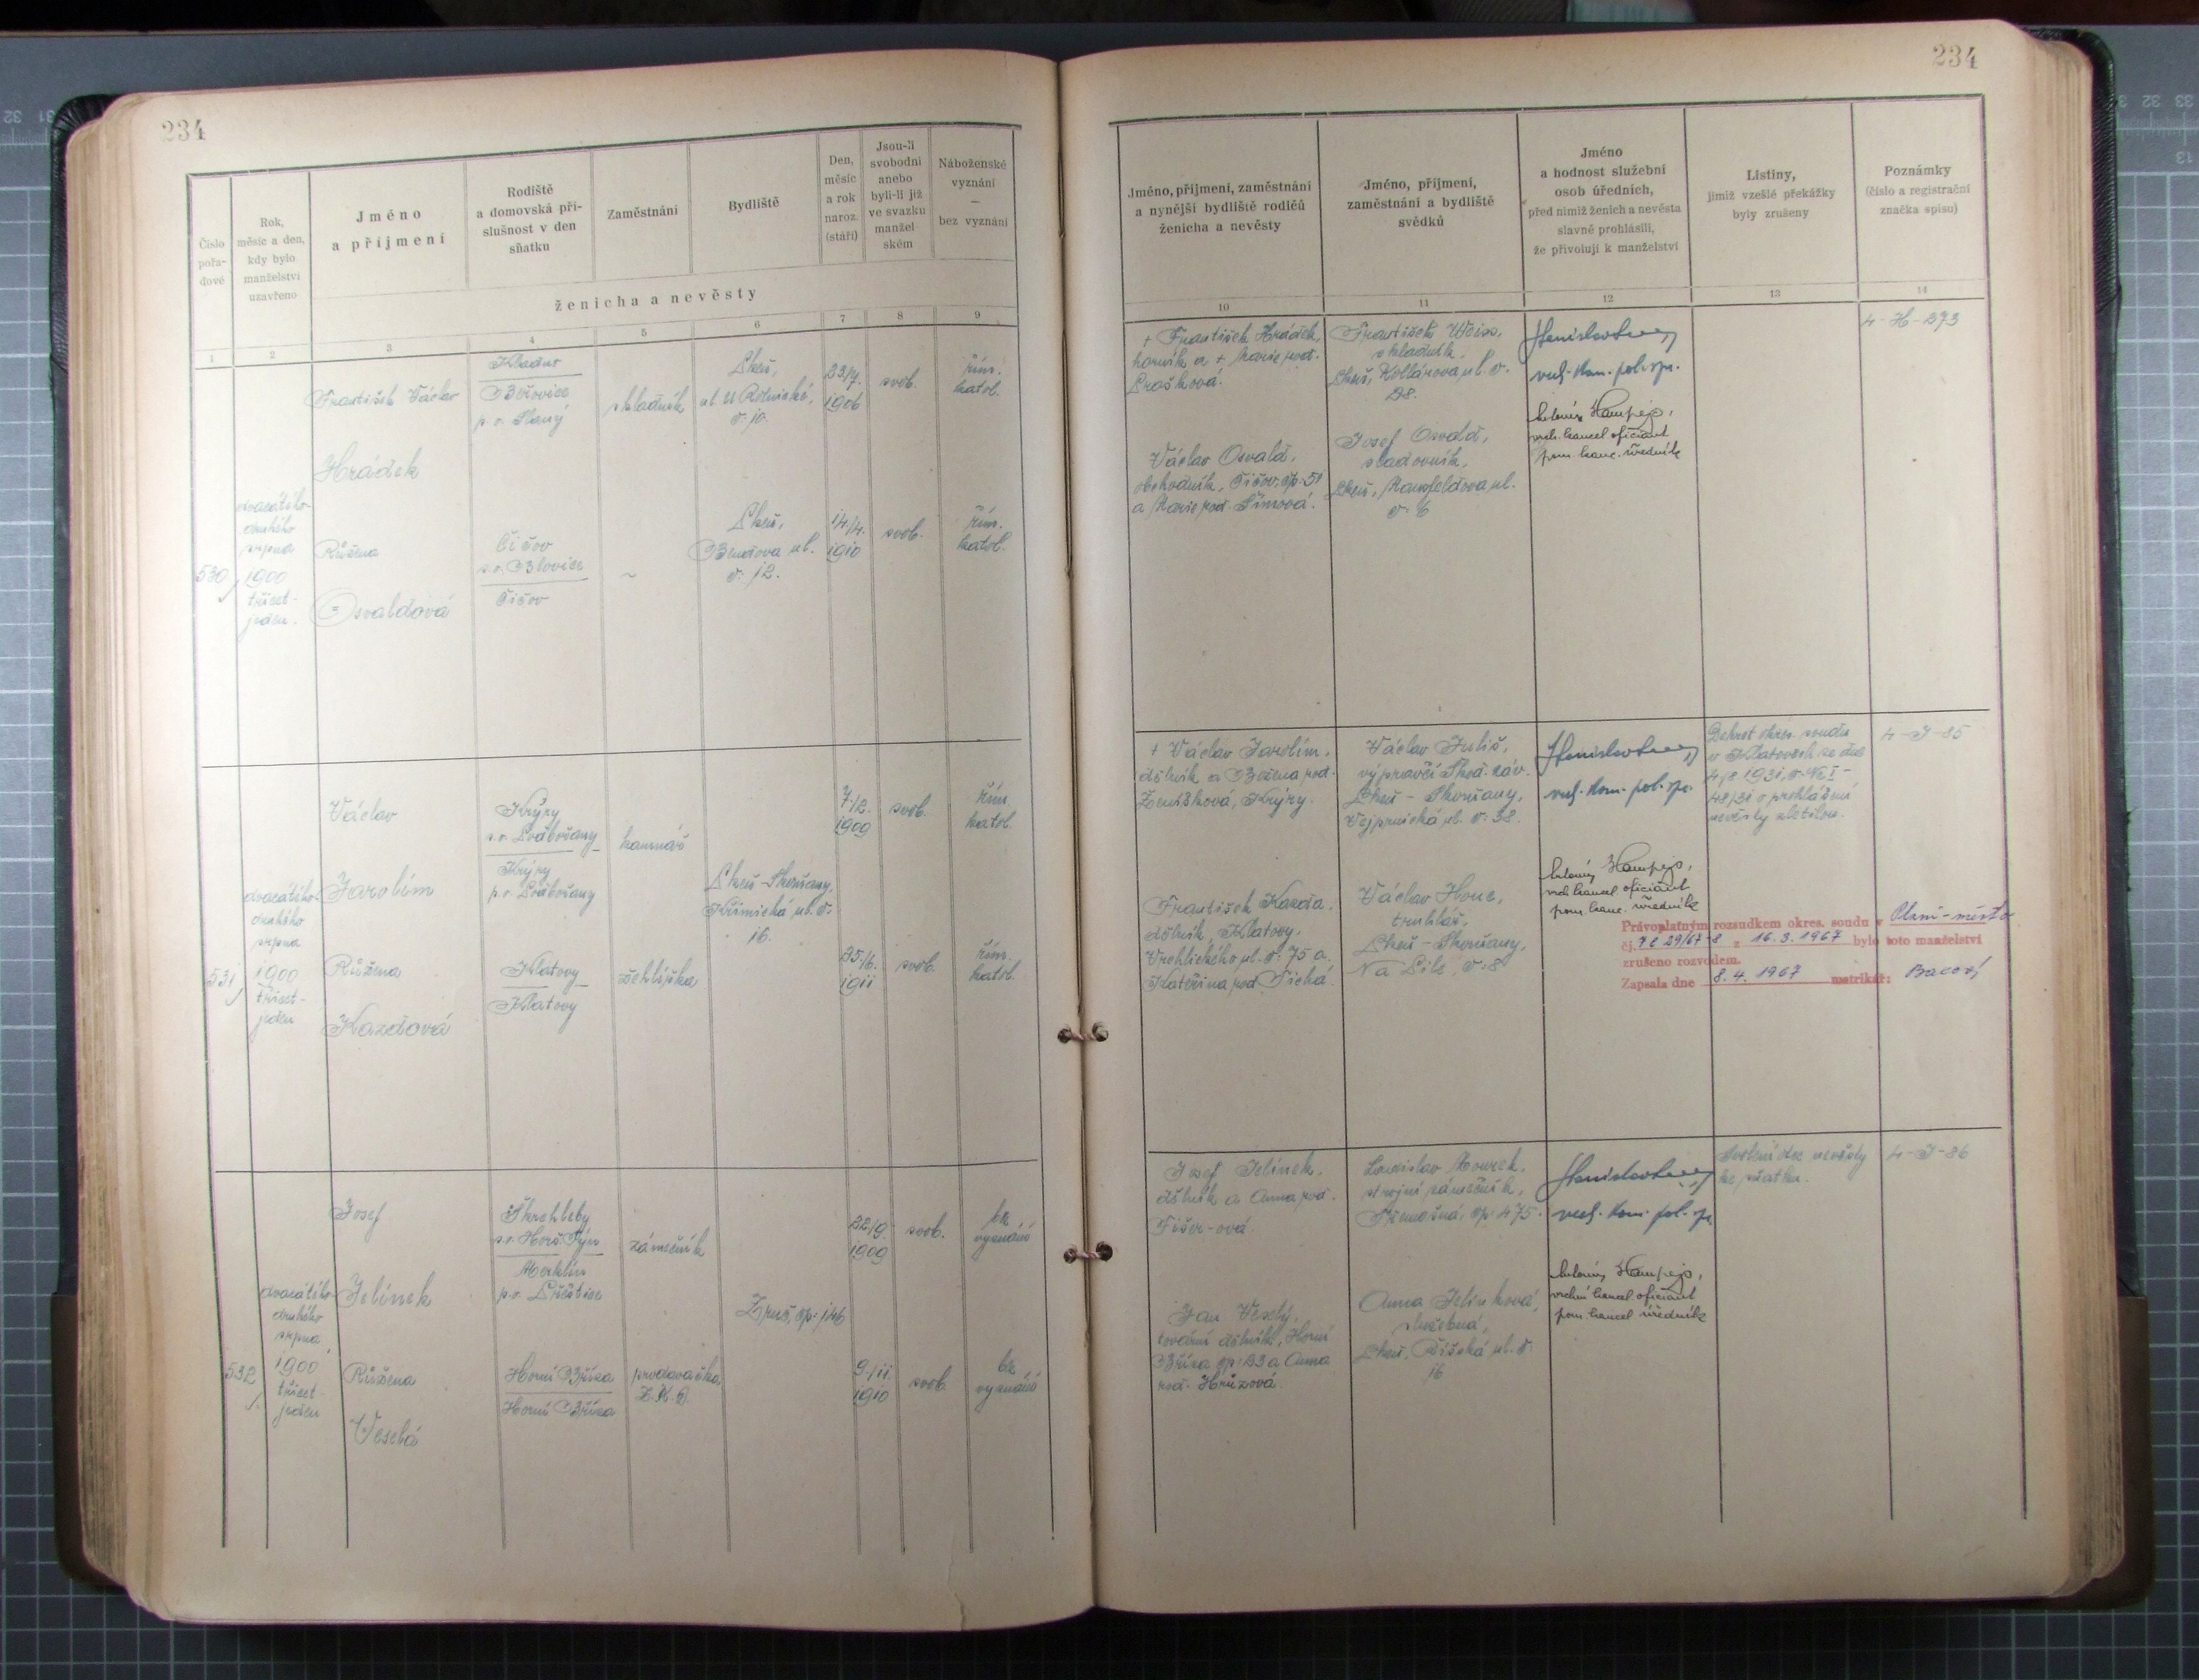 234
234
Číslo
pořa-
dové
Rok,
měsíc a den,
kdy bylo
manželství
uzavřeno
Jméno
a příjmení
Rodiště
a domovská pří-
slušnost v den
sňatku
Zaměstnání
Bydliště
Den,
měsíc
a rok
naroz.
(stáří)
Jsou-li
svobodni
anebo
byli-li již
ve svazku
manžel
ském
Náboženské
vyznání
—
bez vyznání
ženicha a nevěsty
1 2 3 4 5 6 7 8 9
Jméno, příjmení, zaměstnání
a nynější bydliště rodičů
ženicha a nevěsty
Jméno, příjmení,
zaměstnání a bydliště
svědků
Jméno
a hodnost služební
osob úředních,
před nimiž ženich a nevěsta
slavně prohlásili,
že přivolují k manželství
Listiny,
jimiž vzešlé překážky
byly zrušeny
Poznámky
(číslo a registrační
značka spisu)
10 11 12 13 14
530
dvacátého
druhého
srpna
1900
třicet-
jeden.
František Václav
Hrádek
Růžena
Osvaldová
Kladno
p. o. Slaný
Čičov
s. o. Blovice
Čičov
skladník
~
Plzeň,
č. 10.
Plzeň,
Bendova ul.
č. 12.
23/7.
1906
14./4.
1910
svob.
svob.
řím.
katol.
řím.
katol.
+ František Hrádek,
horník a + Marie roz.
Václav Osvald,
obchodník, Čičov, čp: 51
a Marie roz. Šímová.
František Weiss,
skladník,
Plzeň, Kollárova ul. č.
28.
Josef Osvald,
sladovník,
Plzeň, Mansfeldova ul.
č. 6
vrch. kom. pol. spr.
Antonín Hampejs,
vrch. kancel. oficiant
pom. kanc. úředník
4-H-273
531
dvacátého
druhého
srpna
1900
třicet-
jeden
Václav
Jarolím
Růžena
Kazdová
Krýry
s. o. Podbořany
Krýry
p. o. Podbořany
Klatovy
Klatovy
žehlířka
Plzeň-Skvrňany,
Křimická ul. č.
16.
7./12.
1909
25/6.
1911
svob.
svob.
řím.
katol.
řím.
katol.
+ Václav Jarolím,
dělník a Božena roz.
Ženíšková, Krýry.
František Kazda,
dělník, Klatovy,
Vrchlického ul. č: 75 a
Kateřina roz. Tichá.
Václav Juliš,
výpravčí Škod. záv.
Plzeň - Skvrňany,
Vejprnická ul. č: 38.
Václav Hons,
truhlář,
Plzeň - Skvrňany,
Na Pile, č: 8
vrch. kom. pol. spr.
Antonín Hampejs,
vrch. kancel. oficiant
pom. kanc. úředník
Dekret okres. soudu
v Klatovech ze dne
4/8. 1931, č. Nc I-
48/31 o prohlášení
nevěsty zletilou.
4-J-85
Právoplatným rozsudkem okres. soudu v Plzni-město
čj. 7 C 29/67-8 z 16. 3. 1967 bylo toto manželství
zrušeno rozvodem.
Zapsala dne 8. 4. 1967 matrikář:
532
dvacátého
druhého
srpna
1900
třicet-
jeden
Josef
Jelínek
Růžena
Veselá
s. o. Horš. Týn
Merklín
p. o. Přeštice
Horní Bříza
Horní Bříza
zámečník
prodavačka
čp: 146
22/9.
1909
9/11.
1910
svob.
svob.
bez
vyznání
bez
vyznání
Josef Jelínek,
dělník a Anna roz.
Fišer-ová.
Jan Veselý,
tovární dělník, Horní
Bříza čp: 23 a Anna
roz. Hrůzová.
Ladislav Mourek,
strojní zámečník,
Třemošná, čp: 475.
Anna Jelínková,
služebná,
Plzeň, ul. č:
16
vrch. kom. pol. spr.
Antonín Hampejs,
vrchní kancel. oficiant
pom. kancel. úředník
Svolení otce nevěsty
ke sňatku.
4-J-86